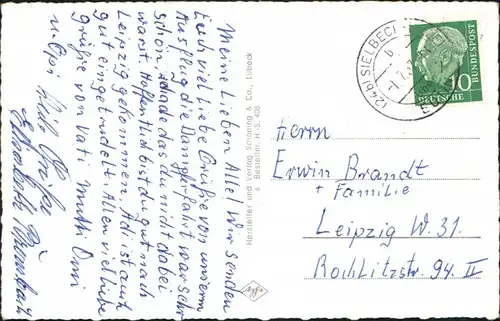 Meine Lieben Alle! Wir senden
Euch viel Liebe Grüße von unserm
Ausflug die Dampferfahrt war sehr
schön, schade das du nicht dabei
warst. Hoffentlich bist du gut nach
Leipzig gekommen. Adi ist auch
gut eingerudelt. Allen viel liebe
Grüße von Vati Mutti Omi
u. Opi
Grüße
Hersteller und Verlag Schöning & Co., Lübeck
Bestellnr. H.-S. 408
(24b) SIELBECK
b
10
DEUTSCHE
BUNDESPOST
Herrn
Erwin Brandt
+ Familie
Leipzig W. 31.
Rochlitzstr. 94. II